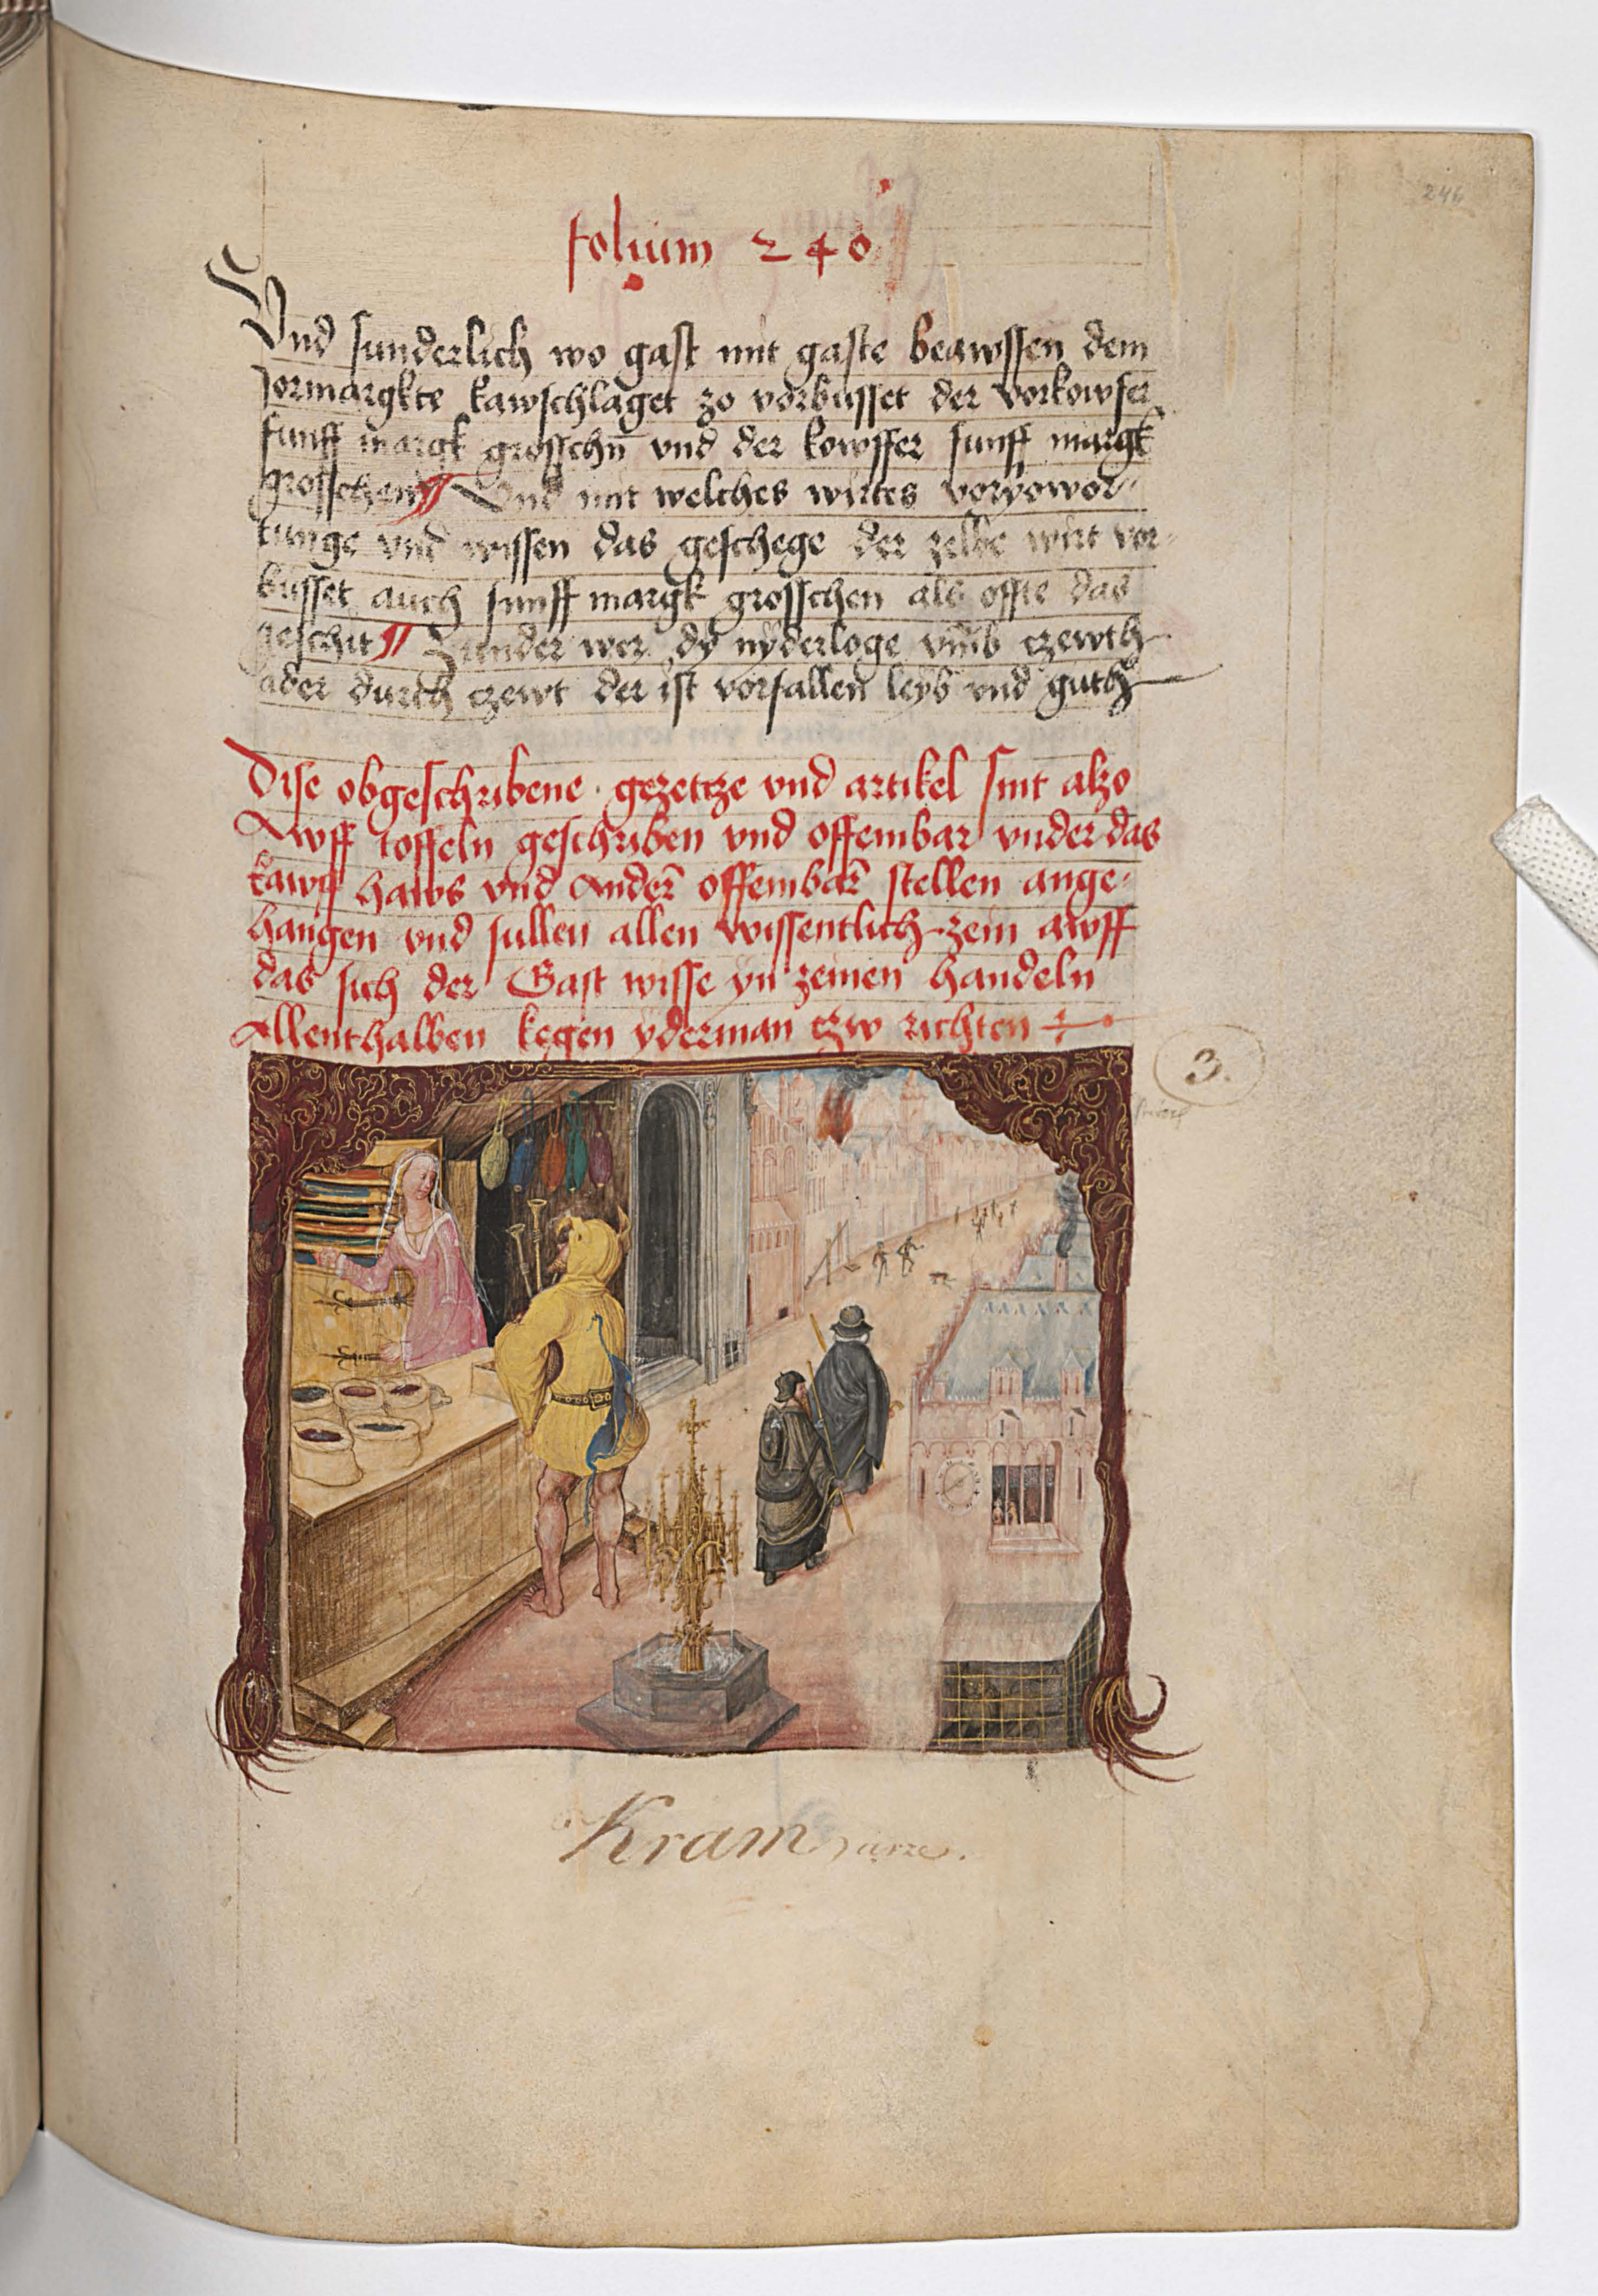 246
folium 240
Vnd sunderlich wo gast mit gaste beawssen dem
Jormargkte kawschlaget zo vorbusset der vorkowfer
funff margk grosschn̄ vnd der kowffer funff margk
grosschen ¶ Vnd mit welches wirtes
tunge vnd wissen das geschege der zelbe wirt vor-
busset auch funff margk grosschen als offte das
geschit ¶ Sunder wer dy nyderloge vmb czewth
ader durch czewt der ist vorfallen leyb vnd guth
Dise obgeschribene gezetcze vnd artikel sint alzo
Awff toffeln geschriben vnd offembar vnder das
kawf haws vnd Andern̄ offembar̄ stellen ange-
hangen vnd sullen allen wissentlich zein awff
das sich der Gast wisse yn zeinen handeln
Allenthalben kegen yderman czw richten
3.
Kram